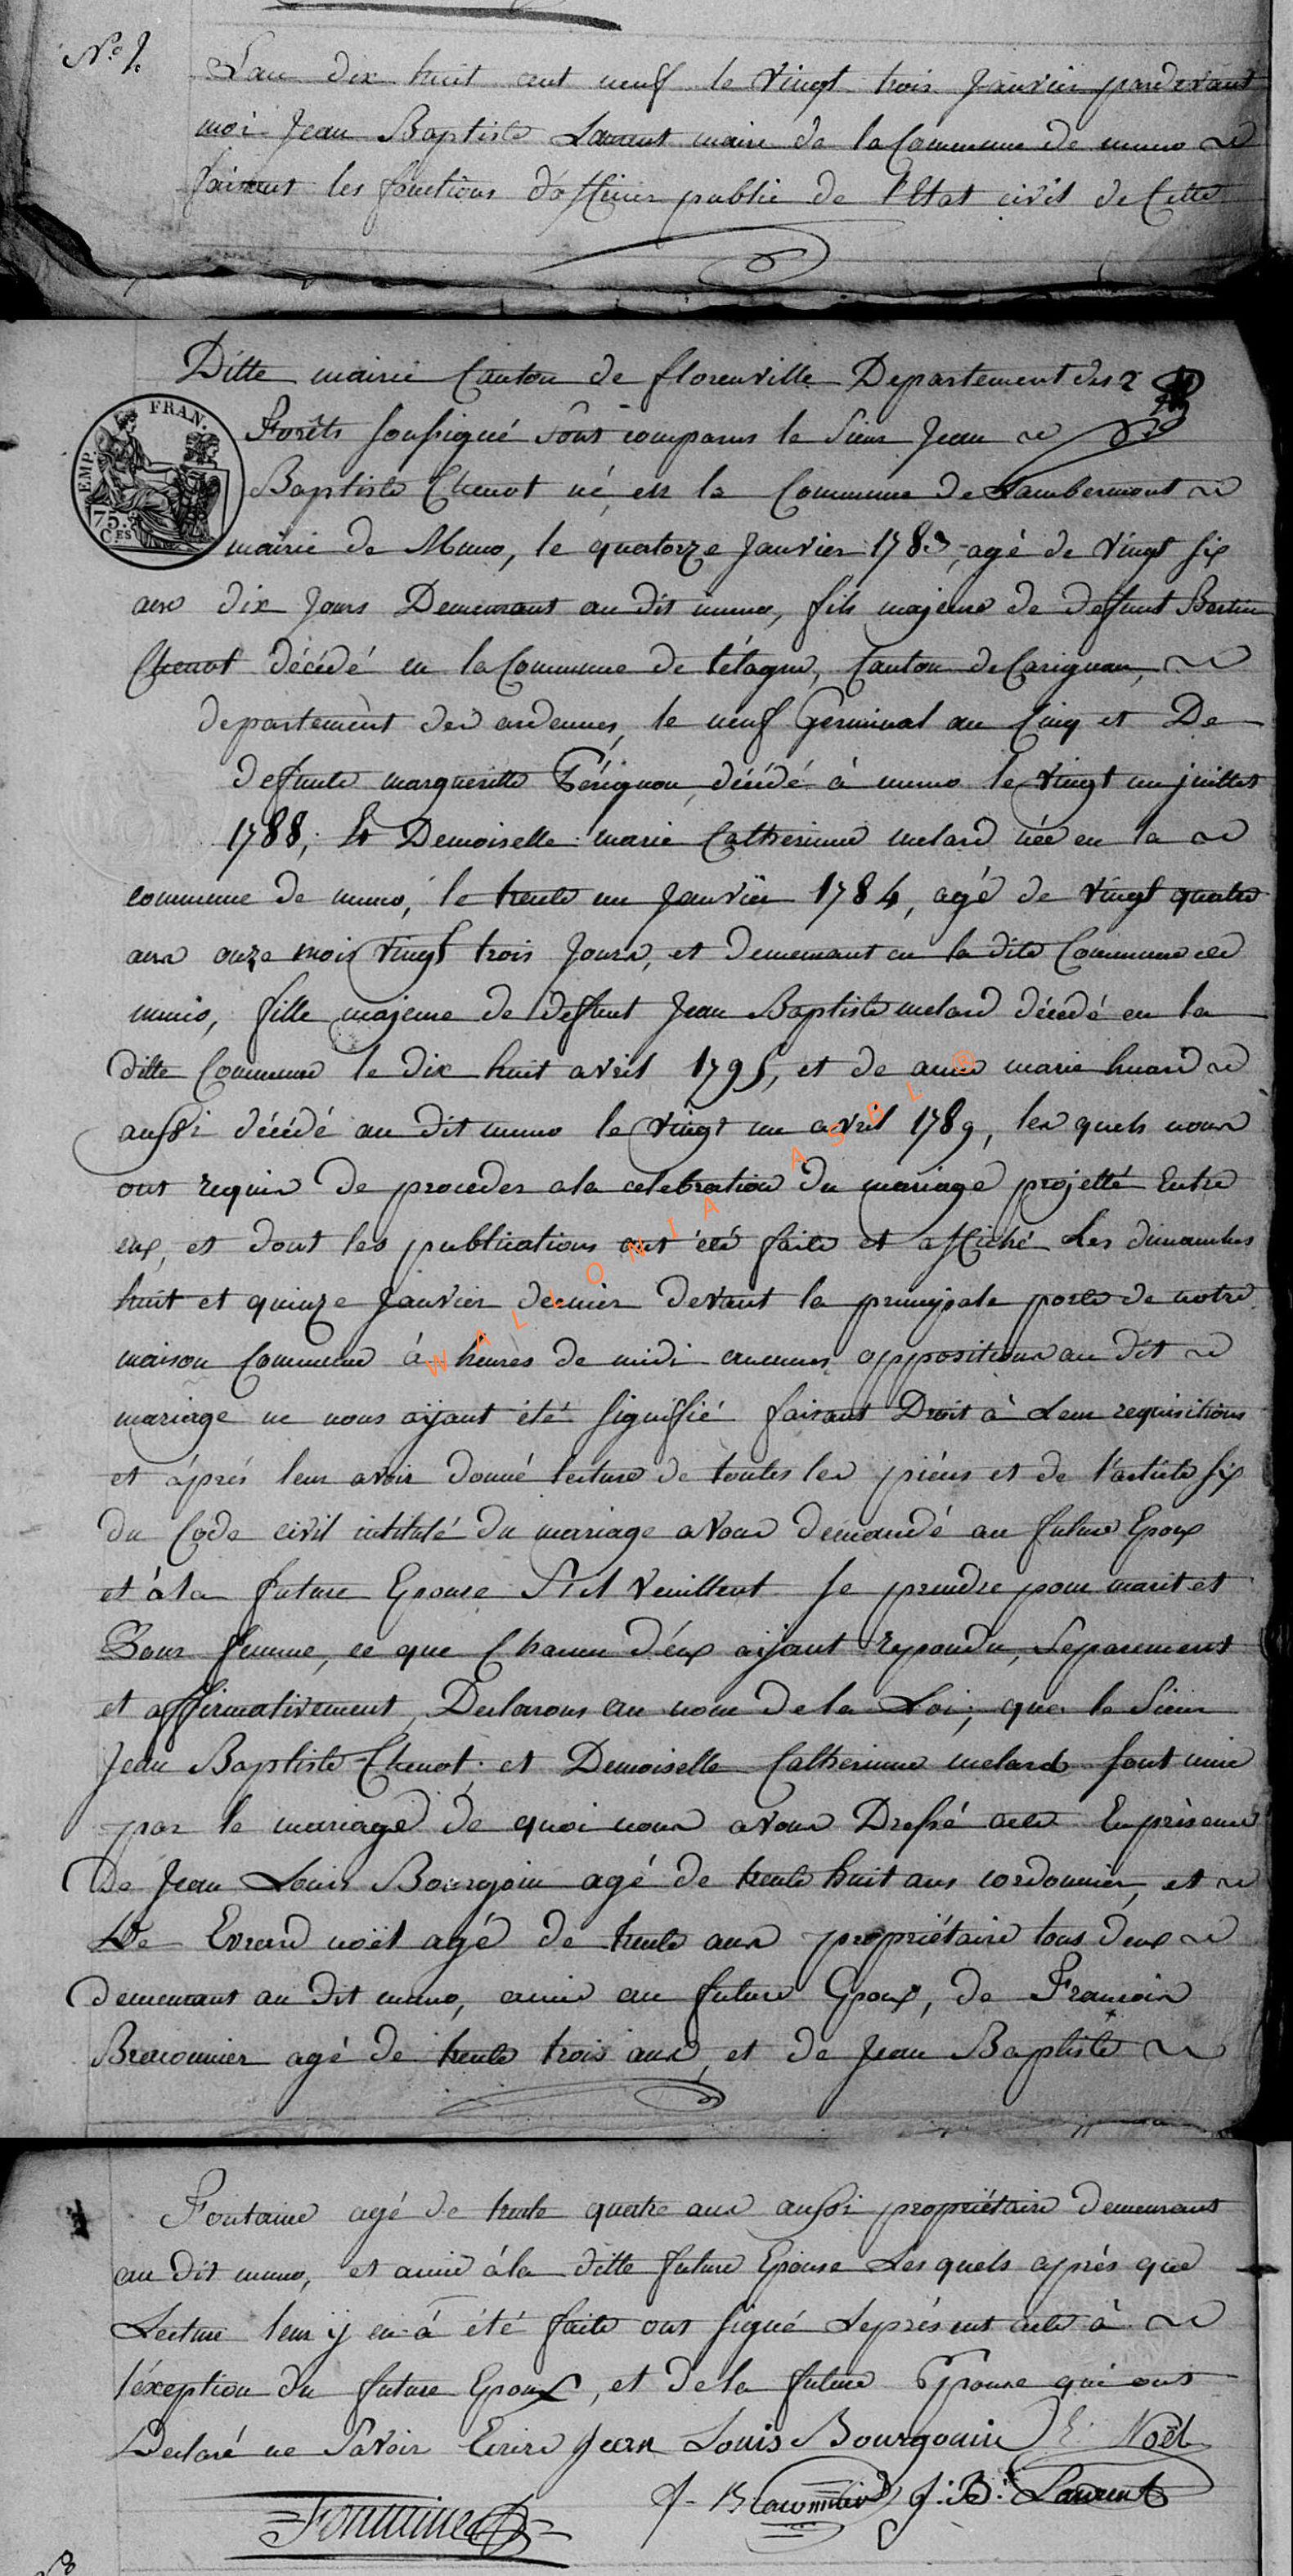 N.o 2.
L'an dix huit cent neuf le vingt trois Janvier pardevant
moi Jean Baptiste Laurent maire de la Commune de muno
faisant les fonctions d'officier public de l'Etat civil de Cette
Ditte mairie Canton de florenville Departement des
Forêts soussigné sont comparus le sieur Jean
Baptiste Chenot né en la Commune de Lambermont
mairie de Muno, le quatorze Janvier 1783, agé de vingt six
ans dix Jours Demeurant au dit muno, fils majeur de deffunt Bertin
Chenot décédé en la Commune de tétagne, Canton de Carignan,
departement des ardennes, le neuf Germinal an Cinq et De
deffunte margueritte Pérignon, décédé à muno le vingt un juillet
1788; Et Demoiselle marie Catherinne melard née en la
commune de muno, le trente un Janvier 1784, agé de vingt quatre
ans onze mois vingt trois Jours, et demeurant en la dite Commune de
muno, fille majeure de deffunt Jean Baptiste melard décédé en la
ditte Commune le dix huit avril 1795, et de anne marie huard
aussi décédé au dit muno le vingt un avril 1789, les quels nous
ont requis de proceder a la celebration du mariage projetté Entre
eux, et dont les publications ont été faite et affiché Les dimanches
huit et quinze Janvier dernier devant la principale porte de notre
maison Commune à heures de midi aucunes oppositions au dit
mariage ne nous aÿant été signiffié faisant Droit à Leur requisitions
et àprés leur avoir donné lecture de toutes les piéces et de l'article six
du Code civil intitulé du mariage avons demandé au future Epoux
et à la future Epouse S'il veuillent se prendre pour marit et
Pour femme, ce que Chacun d'eux aÿant repondu, Separement
et affirmativement, Declarons au nom de la Loi, que le Sieur
Jean Baptiste Chenot et Demoiselle Catherinne melard sont unie
par le mariage de quoi nous avons Dressé acte En présence
De Jean Louis Bourgoin agé de trente huit ans cordonnier, et
De Evrard noël agé de trente ans propriétaire tous deux
demeurant au dit muno, amis au future Epoux, de Francois
Braconnier agé de trente trois ans, et de Jean Baptiste
Fontaine agé de trente quatre ans aussi propriétaire demeurant
au dit muno, et amie à la ditte future Epouse Les quels après que
Lecture leur ÿ en à été faite ont signé Le présent acte à
l'éxception du future Epoux, et de la future Epouse qui ont
Declaré ne Savoir Ecrire Jean Louis Bourgouin E. Noël
f. Braconnier J: B: Laurent
Fontaine
EMP. FRAN.
75 C.ES
WALLONIA ASBL @